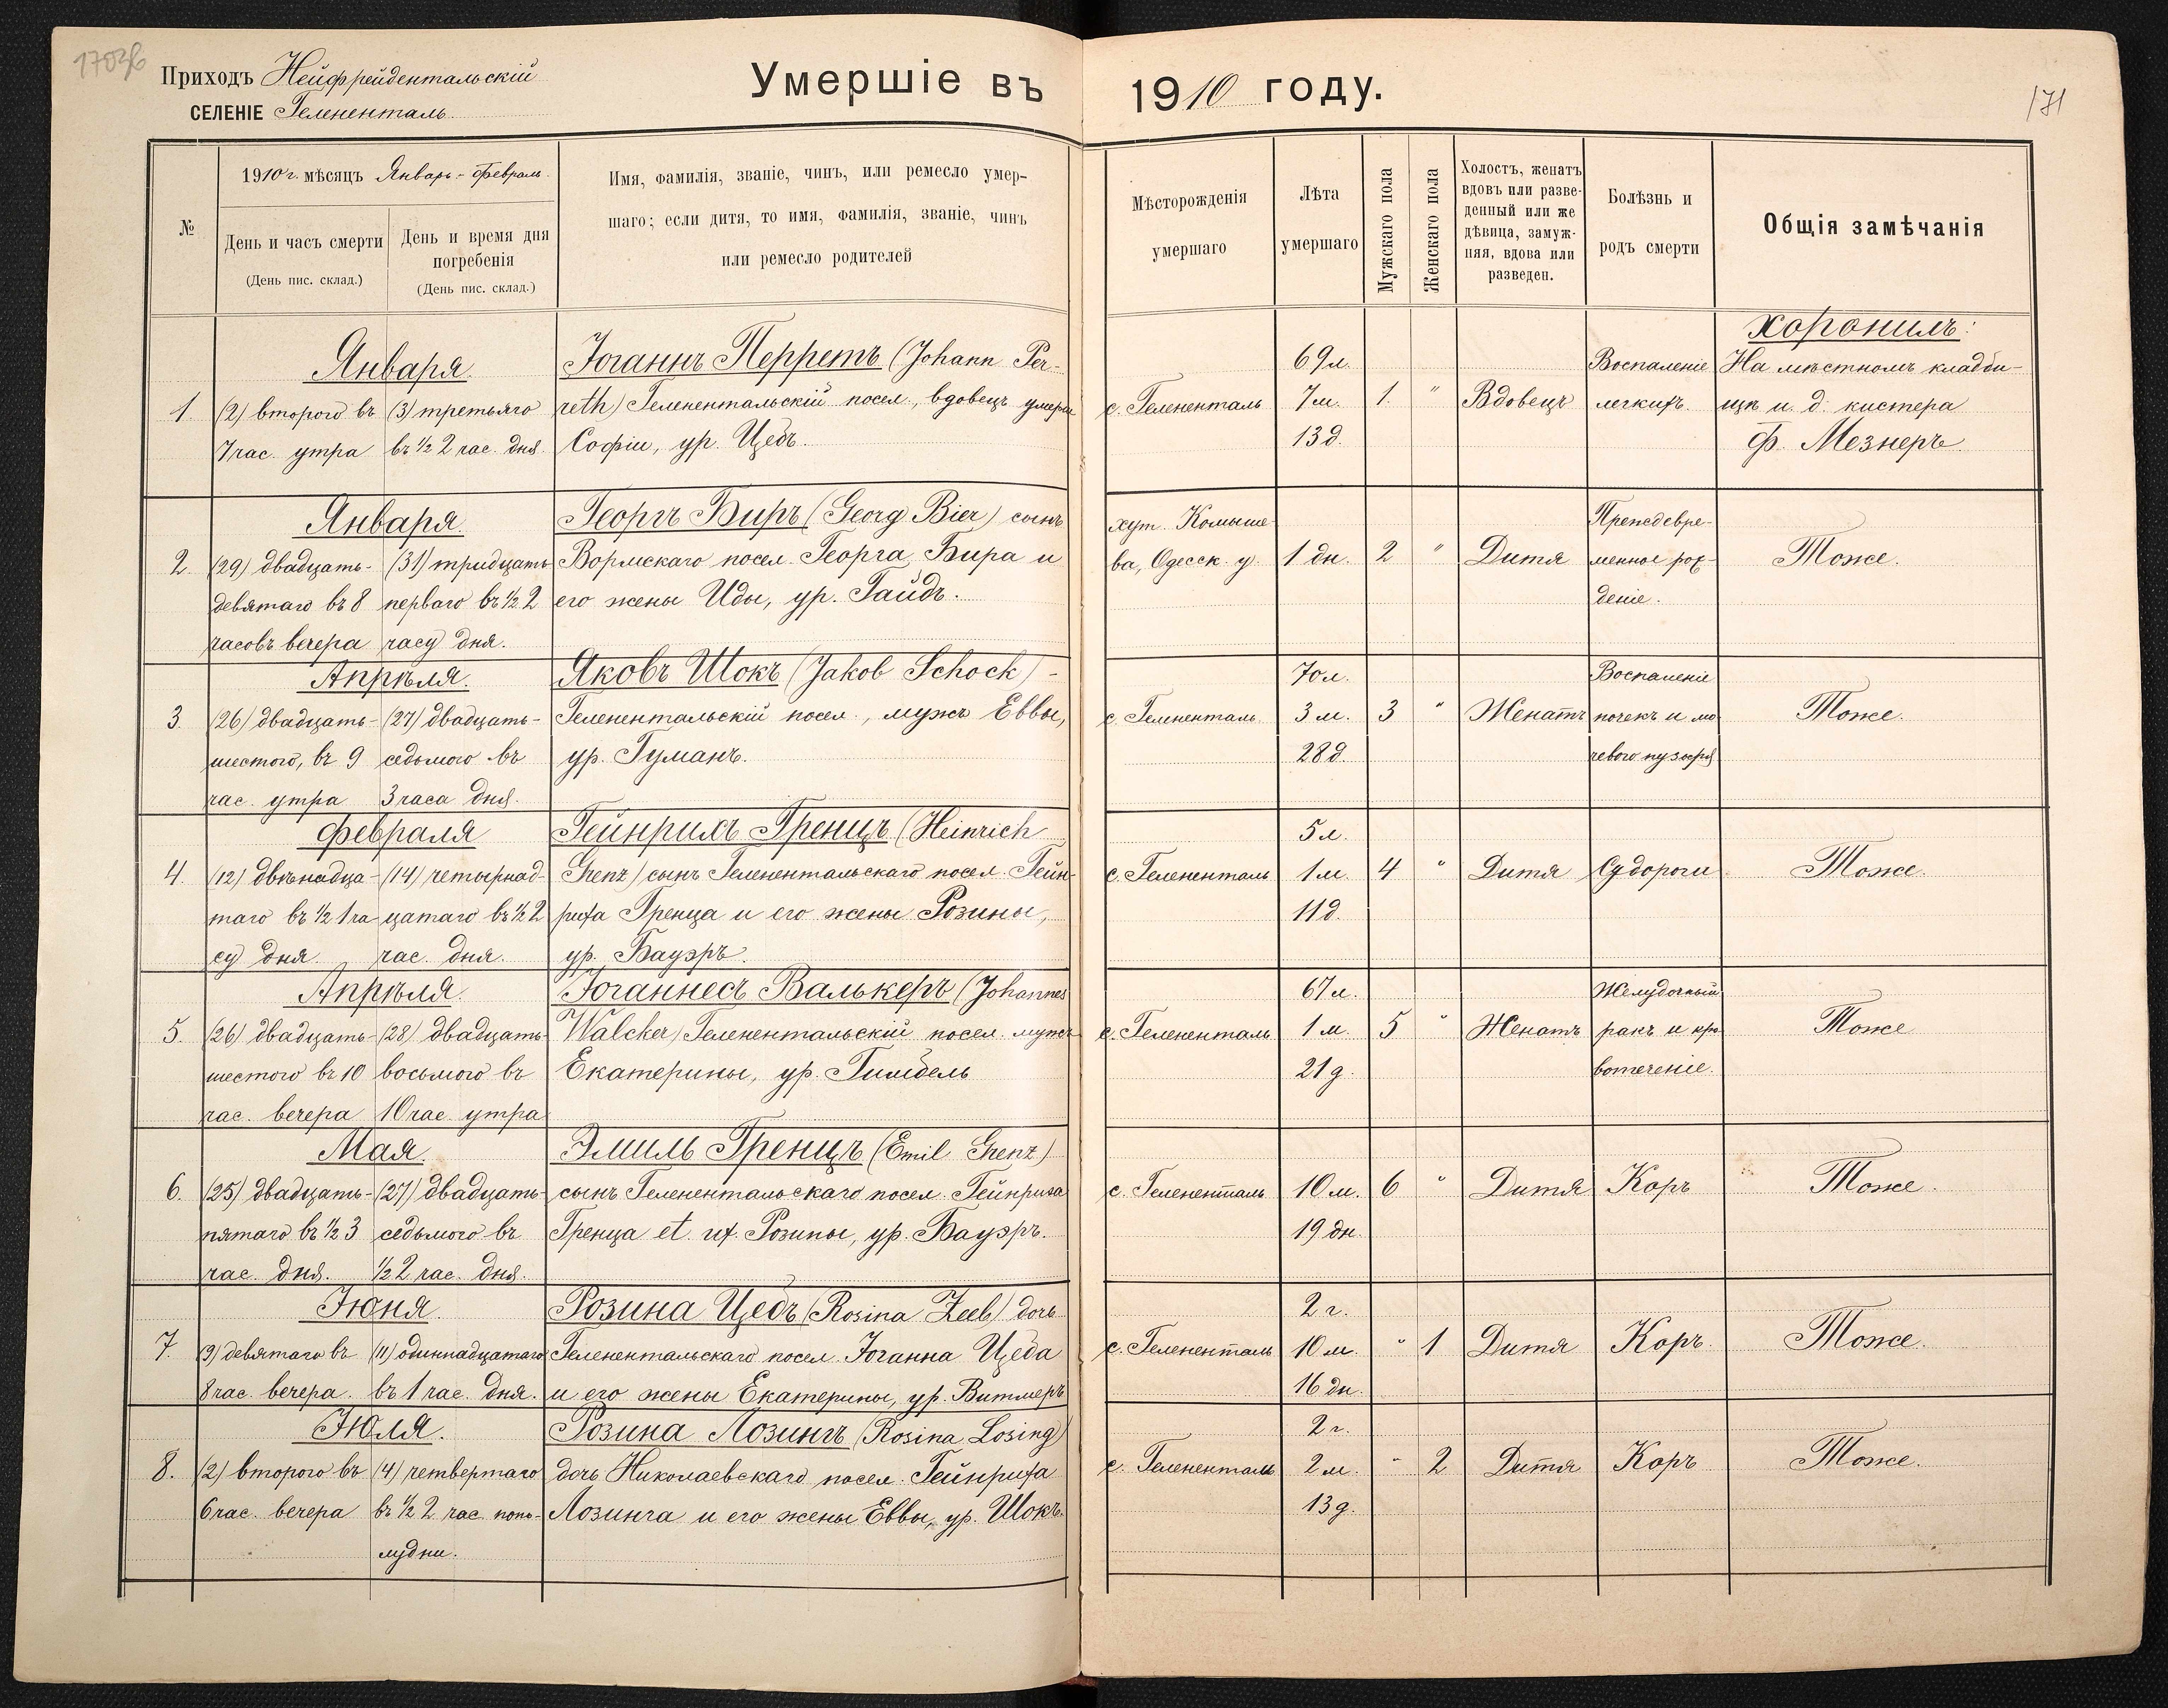 17036
Приходъ Нейфрейдентальскій
СЕЛЕНІЕ Гелененталь
Умершіе въ 1910 году.
171
№
1910 г. мѣсяцъ Январь - Февраль
День и часъ смерти
(День пис. склад.)
День и время дня
погребенія
(День пис. склад.)
Имя, фамилія, званіе, чинъ, или ремесло умер-
шаго; если дитя, то имя, фамилія, званіе, чинъ
или ремесло родителей
Мѣсторожденія
умершаго
Лѣта
умершаго
Мужскаго пола
Женскаго пола
Холостъ, женатъ
вдовъ или разве-
денный или же
дѣвица, замуж-
няя, вдова или
разведен.
Болѣзнь и
родъ смерти
Общія замѣчанія
1.
Января
(2) второго въ
7 час. утра
(3) третьяго
въ ½ 2 час. дня.
Іоганнъ Перретъ (Johann Per-
reth) Геленентальскій посел., вдовецъ умерш.
Софіи, ур. Цебъ.
с. Гелененталь
69 л.
7 м.
13 д.
1.
"
Вдовецъ
Воспаленіе
легкихъ.
хоронилъ:
На мѣстномъ кладби-
щѣ и. д. кистера
Ф. Мезнеръ
2.
Января
(29) двадцать-
девятаго въ 8
часовъ вечера
(31) тридцать
перваго въ ½ 2
часу дня.
Георгъ Биръ (Georg Bier) сынъ
Вормскаго посел. Георга Бира и
его жены Иды, ур. Гайдъ.
хут. Комыше-
ва, Одесск. у.
1 дн.
2
"
Дитя
Преждевре-
менное рож-
деніе.
Тоже.
3.
Апрѣля.
(26) двадцать-
шестого, въ 9
час. утра
(27) двадцать-
седьмого въ
3 часа дня.
Яковъ Шокъ (Jakob Schock) -
Геленентальскій посел., мужъ Еввы,
ур. Гуманъ.
с. Гелененталь
70 л.
3 м.
28 д.
3
"
Женатъ
Воспаленіе
почекъ и мо
чевого пузыря
Тоже.
4.
Февраля
(12) двѣнадца-
таго въ ½ 1 ча
су дня.
(14) четырнад-
цатаго въ ½ 2
час. дня.
Гейнрихъ Гренцъ (Heinrich
Grenz) сынъ Геленентальскаго посел. Гейн-
риха Гренца и его жены Розины,
ур. Бауэръ.
с. Гелененталь
5 л.
1 м.
11 д.
4
"
Дитя
Судороги
Тоже.
5.
Апрѣля.
(26) двадцать-
шестого въ 10
час. вечера
(28) двадцать
восьмого въ
10 час. утра
Іоганнесъ Валькеръ (Johannes
Walcker) Геленентальскій посел. мужъ
Екатерины, ур. Гимбель
с. Гелененталь
67 л.
1 м.
21 д.
5
"
Женатъ
Желудочный
ракъ и кро
вотеченіе.
Тоже
6.
Мая.
(25) двадцать-
пятаго въ ½ 3
час. дня.
(27) двадцать-
седьмого въ
½ 2 час. дня.
Эмиль Гренцъ (Emil Grenz)
сынъ Геленентальскаго посел. Гейнриха
Гренца et ux. Розины, ур. Бауэръ.
с. Гелененталь
10 м.
19 дн.
6
"
Дитя
Корь
Тоже.
7.
Іюня.
(9) девятаго въ
8 час. вечера.
(11) одиннадцатаго
въ 1 час. дня.
Розина Цебъ (Rosina Zeeb) дочь
Геленентальскаго посел. Іоганна Цеба
и его жены Екатерины, ур. Витмеръ
с. Гелененталь
2 г.
10 м.
16 дн.
"
1
Дитя
Корь.
Тоже.
8.
Іюля.
(2) второго въ
6 час. вечера
(4) четвертаго
въ ½ 2 час. попо-
лудни.
Розина Лозингъ (Rosina Losing)
дочь Николаевскаго посел. Гейнриха
Лозинга и его жены Еввы, ур. Шокъ.
с. Гелененталь
2 г.
2 м.
13 д.
"
2
Дитя
Корь
Тоже.